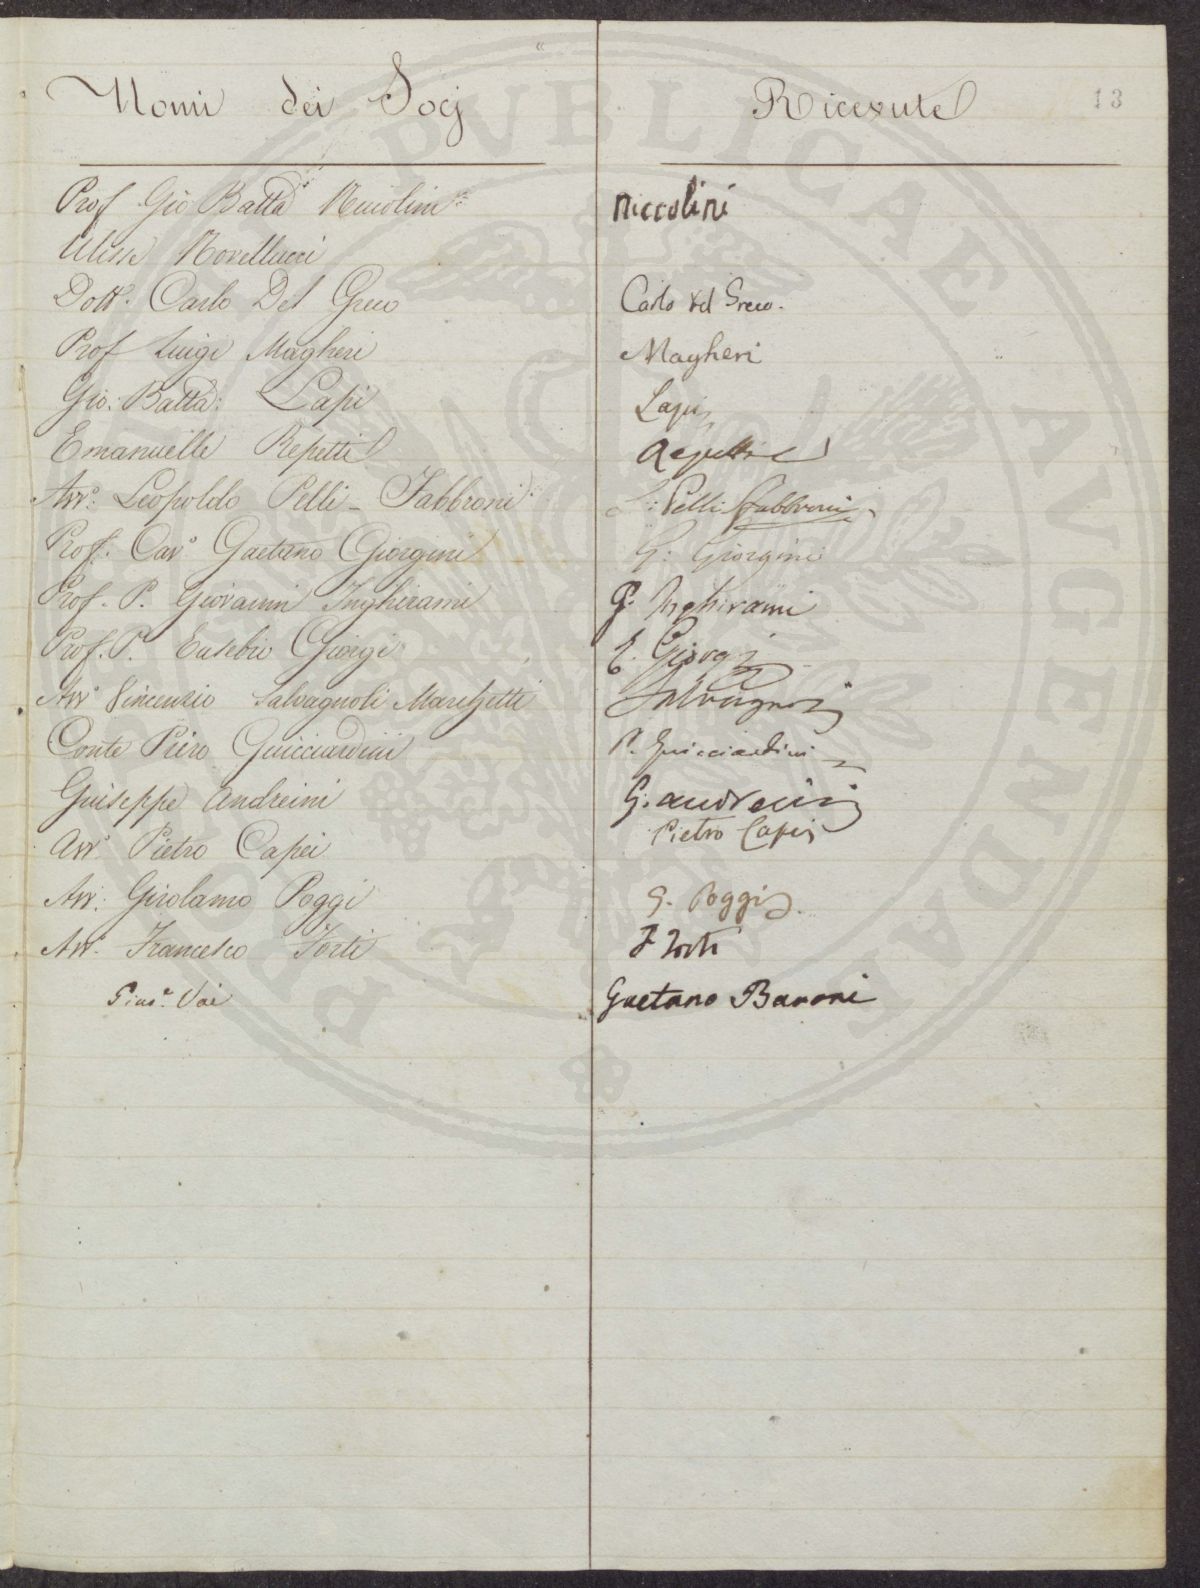 Nomi dei Socj
Ricevute
13
Prof Gio Batta Niccolini
Niccolini
Ulisse Novellucci
Dott. Carlo Del Greco
Carlo del Greco.
Prof Luigi Magheri
Magheri
Gio: Batta: Lapi
Lapi
Emanuelle Repetti
Repetti
Avv.o Leopoldo Pelli - Fabbroni
L: Pelli Fabbroni
Prof. Cav.o Gaetano Giorgini
G: Giorgini
Prof. P. Giovanni Inghirami
G. Inghirami
Prof. P. Eusebio Giorgi
E. Giorgi
Avv.o Vincenzio Salvagnoli Marchetti
Salvagnoli
Conte Piero Guicciardini
P. Guicciardini
Guiseppe Andreini
G. Andreini
Avv.o Pietro Capei
Pietro Capei
Avv. Girolamo Poggi
G. Poggi
Avv. Francesco Forti
F Forti
Vai
Gaetano Baroni
PUBLICAE AUGENDAE